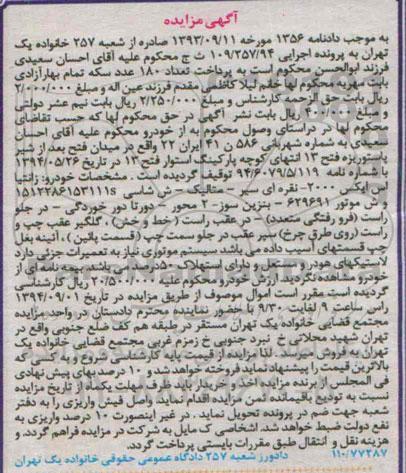 آگهی مزایده
به موجب دادنامه ۱۳۵۶ مورخه ۱۳۹۳/۰۹/۱۱ صادره از شعبه ۲۵۷ خانواده یک
تهران به پرونده اجرایی ۱۰۹/۳۵۷/۹۴ ث ج محکوم علیه آقای احسان سعیدی
فرزند ابوالحسن محکوم است به پرداخت تعداد ۱۸۰ عدد سکه تمام بهارآزادی
بابت مهریه محکوم لها خانم لیلا کاظمی مقدم فرزند عین اله و مبلغ ۲/۰۰۰/۰۰۰
ریال بابت حق الزحمه کارشناس و مبلغ ۲/۲۵۰/۰۰۰ ریال بابت نیم عشر دولتی
و مبلغ ریال بابت نشر آگهی در حق محکوم لها که حسب تقاضای
محکوم لها در راستای وصول محکوم به از خودرو محکوم علیه آقای احسان
سعیدی به شماره شهربانی ۵۸۶ ن ۴۱ ایران ۲۲ واقع در میدان فتح بعد از شیر
پاستوریزه فتح ۱۳ انتهای کوچه پارکینگ استوار فتح ۱۳ در تاریخ ۱۳۹۴/۰۵/۲۶
با شماره نامه ۹۴/۶۰۷۹/۵/۱۱۹ توقیف گردیده است . مشخصات خودرو: زانتیا
اس ایکس ۲۰۰۰- نقره ای سیر - متالیک - ش شاسی
و ش موتور ۶۲۹۶۹۱ - بنزین سوز- ۲ محور - دورتا دور خوردگی - در جلو
راست (فرو رفتگی متعدد) - در عقب راست ( خط و خش) . گلگیر عقب چپ و
راست (روی طرق چرخ) سپر عقب در جلو سمت چپ (قسمت پائین) . آئینه بغل
چپ قسمتهای آسیب داده می باشد سیستم موتوری نیاز به تعمیرات جزئی دارد
لاستیکهای خودرو مستعمل و دارای استهلاک ۵۰درصد می باشد. بیمه نامه ای از
خودرو مشاهده نگردید. ارزش خودرو محکوم علیه ۲۰/۵۰۰/۰۰۰ ریال کارشناسی
گردیده است مقرر است اموال موصوف از طریق مزایده در تاریخ ۱۳۹۴/۰۹/۰۱
راس ساعت ۹ لغایت ۹/۳۰ با حضور نماینده محترم دادستان در واحد مزایده
مجتمع قضایی خانواده یک تهران مستقر در طبقه هم کف ضلع جنوبی واقع در
تهران شهید محلاتی خ نبرد جنوبی خ زمزم غربی مجتمع قضایی خانواده یک
تهران به فروش میرسد. لذا مزایده از قیمت پایه کارشناسی شروع و به کسی که
بالاترین قیمت را پیشنهاد نماید فروخته خواهد شد و ۱۰ درصد بهای پیش نهادی
فی المجلس از برنده مزایده اخذ و خریدار باید ظرف مهلت یکماه از تاریخ مزایده
نسبت به تودیع باقیمانده ثمن مزایده اقدام نماید. واصل فیش واریزی را به دفتر
شعبه جهت ضم در پرونده تحویل نماید . در غیر اینصورت ۱۰ درصد واریزی به
نفع دولت ضبط خواهد شد. اشخاصی ک مایل به شرکت در مزایده فراهم گردد. و
هزینه نقل و انتقال طبق مقررات بایستی پرداخت گردد.
۱۱۰/۷۷۲۸۷ دادورز شعبه ۲۵۷ دادگاه عمومی حقوقی خانواده یک تهران